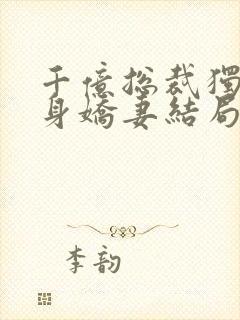 千億總裁獨
身嬌妻結局
李韵